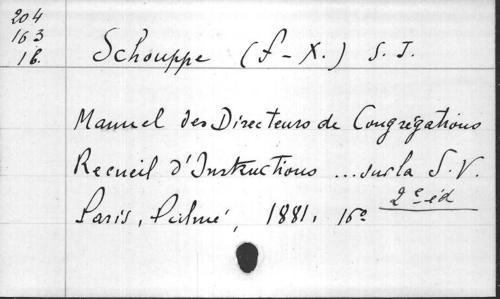 204
163
16.
Schouppe (F-X.) S. J.
Manuel des Directeurs de Congrégations
Recueil d'Instructions ... sur la S. V.
2e éd
Paris, Palmé, 1881, 16o